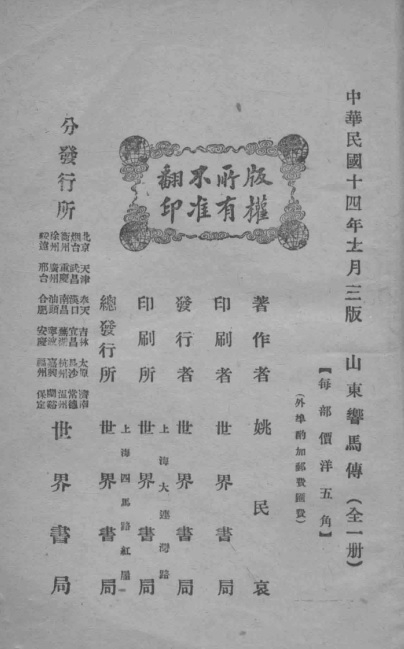 中華民國十四年十一月三版
山東響馬傳(全一册)
【每部價洋五角】
(外埠酌加郵費匯費)
版權
所有
不准
翻印
著作者 姚民哀
印刷者 世界書局
發行者 世界書局
上海大連灣路
印刷所 世界書局
上海四馬路紅屋
總發行所 世界書局
分發行所
北京 天津 奉天 吉林 太原 濟南
烟台 武昌 漢口 宜昌 長沙 常德
衡州 重慶 南昌 蕪湖 杭州 溫州
徐州 廣州 汕頭 寧波 嘉興 蘭谿
綏遠 邢台 合肥 安慶 福州 保定
世界書局